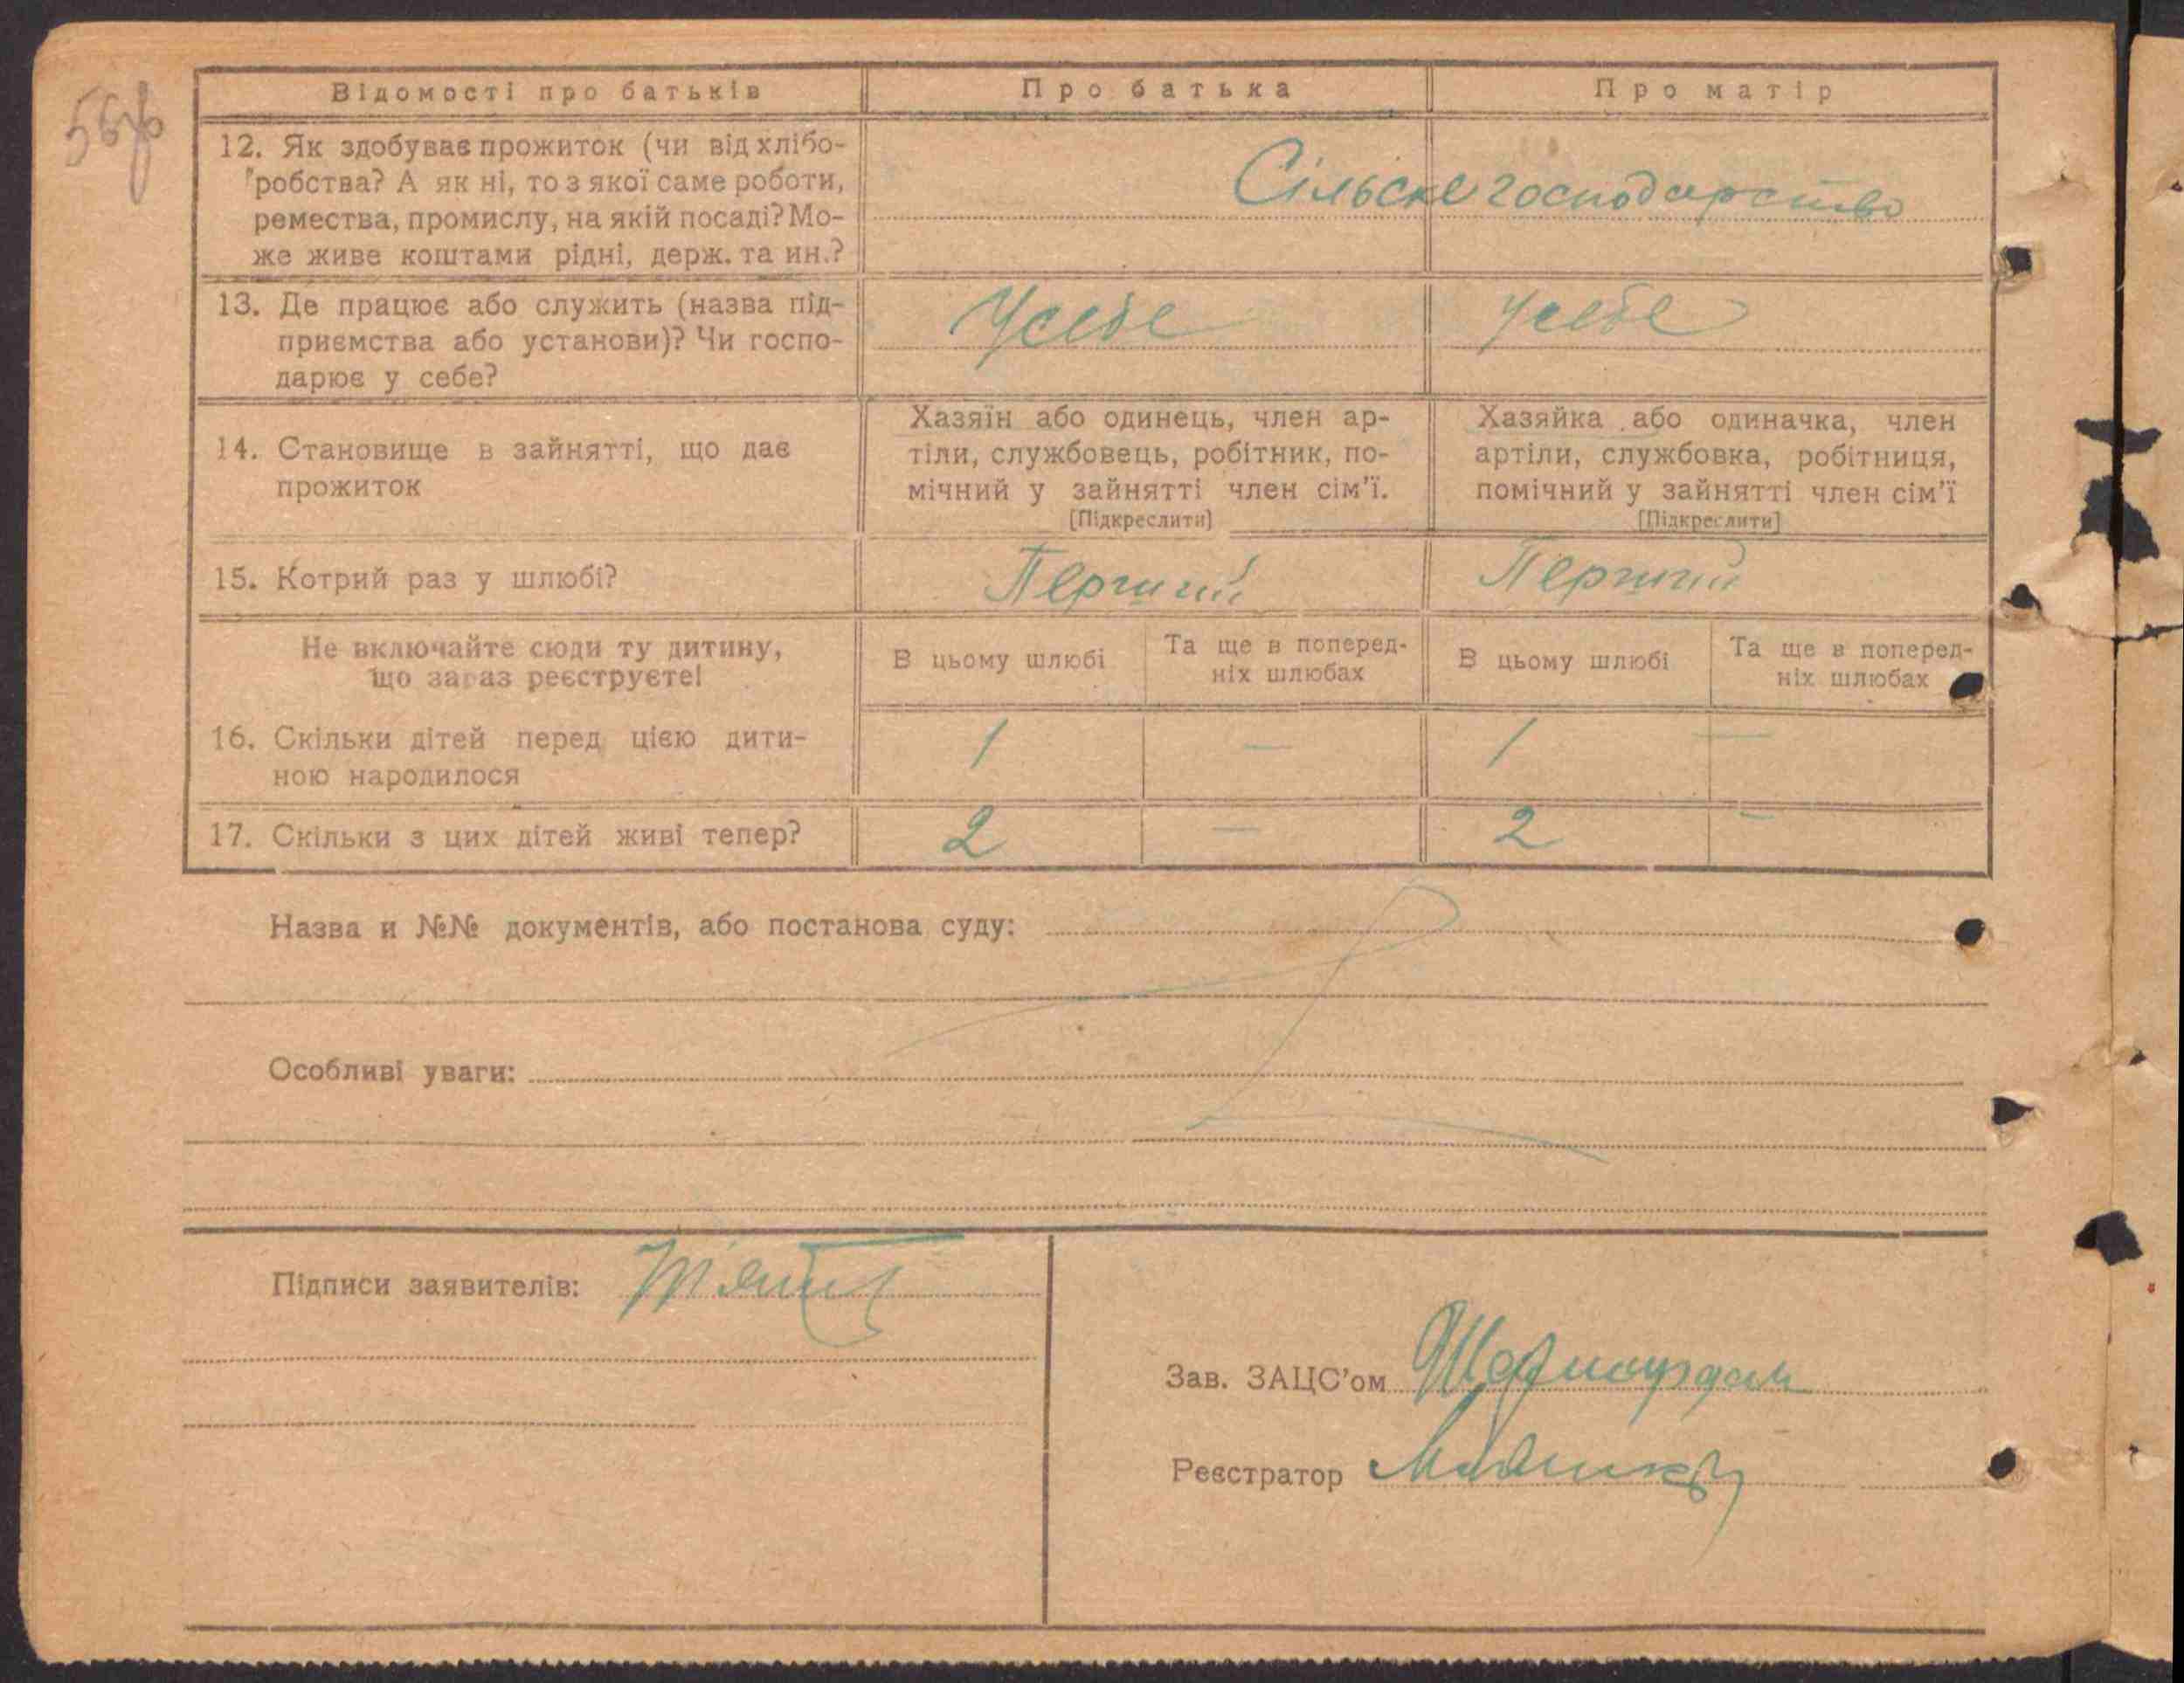 56
Відомості про батьків
Про батька
Про матір
12. Як здобуває прожиток (чи від хлібо-
робства? А як ні, то з якої саме роботи,
ремества, промислу, на якій посаді? Мо-
же живе коштами рідні, держ. та ин.?
Сільске господарство
13. Де працює або служить (назва під-
приємства або установи)? Чи госпо-
дарює у себе?
Усебе
Усебе
14. Становище в зайнятті, що дає
прожиток
Хазяїн або одинець, член ар-
тіли, службовець, робітник, по-
мічний у зайнятті член сім'ї.
[Підкреслити]
Хазяйка або одиначка, член
артіли, службовка, робітниця,
помічний у зайнятті член сім'ї
[Підкреслити]
15. Котрий раз у шлюбі?
Перший
Перший
Не включайте сюди ту дитину,
що зараз реєструєте!
В цьому шлюбі
Та ще в поперед-
ніх шлюбах
В цьому шлюбі
Та ще в поперед-
ніх шлюбах
16. Скільки дітей перед цією дити-
ною народилося
1 — 1 —
17. Скільки з цих дітей живі тепер?
2 — 2 —
Назва и №№ документів, або постанова суду:
Особливі уваги:
Підписи заявителів:
Зав. ЗАЦС'ом
Реєстратор